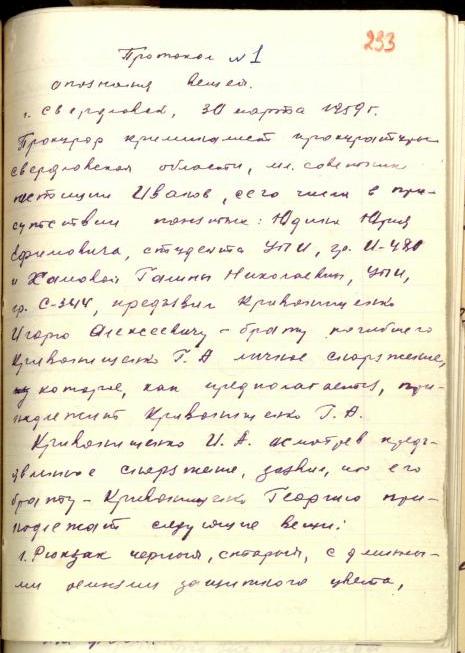 233
Протокол №1
опознания вещей.
г. Свердловск, 30 марта 1959 г.
Прокурор криминалист прокуратуры
Свердловской области, мл. советник
юстиции Иванов, сего числа в при-
сутствии понятых: Юдина Юрия
Ефимовича, студента УПИ, гр. И-480
и Хамовой Галины Николаевны, УПИ,
гр. С-344, предъявил Кривонищенко
Игорю Алексеевичу - брату погибшего
Кривонищенко Г. А личное снаряжение,
которое, как предполагается, при-
надлежит Кривонищенко Г. А.
Кривонищенко И. А. осмотрев предъ-
явленное снаряжение, заявил, что его
брату - Кривонищенко Георгию при-
надлежат следующие вещи:
1. Рюкзак черный, старый, с длинны-
ми защитного цвета,